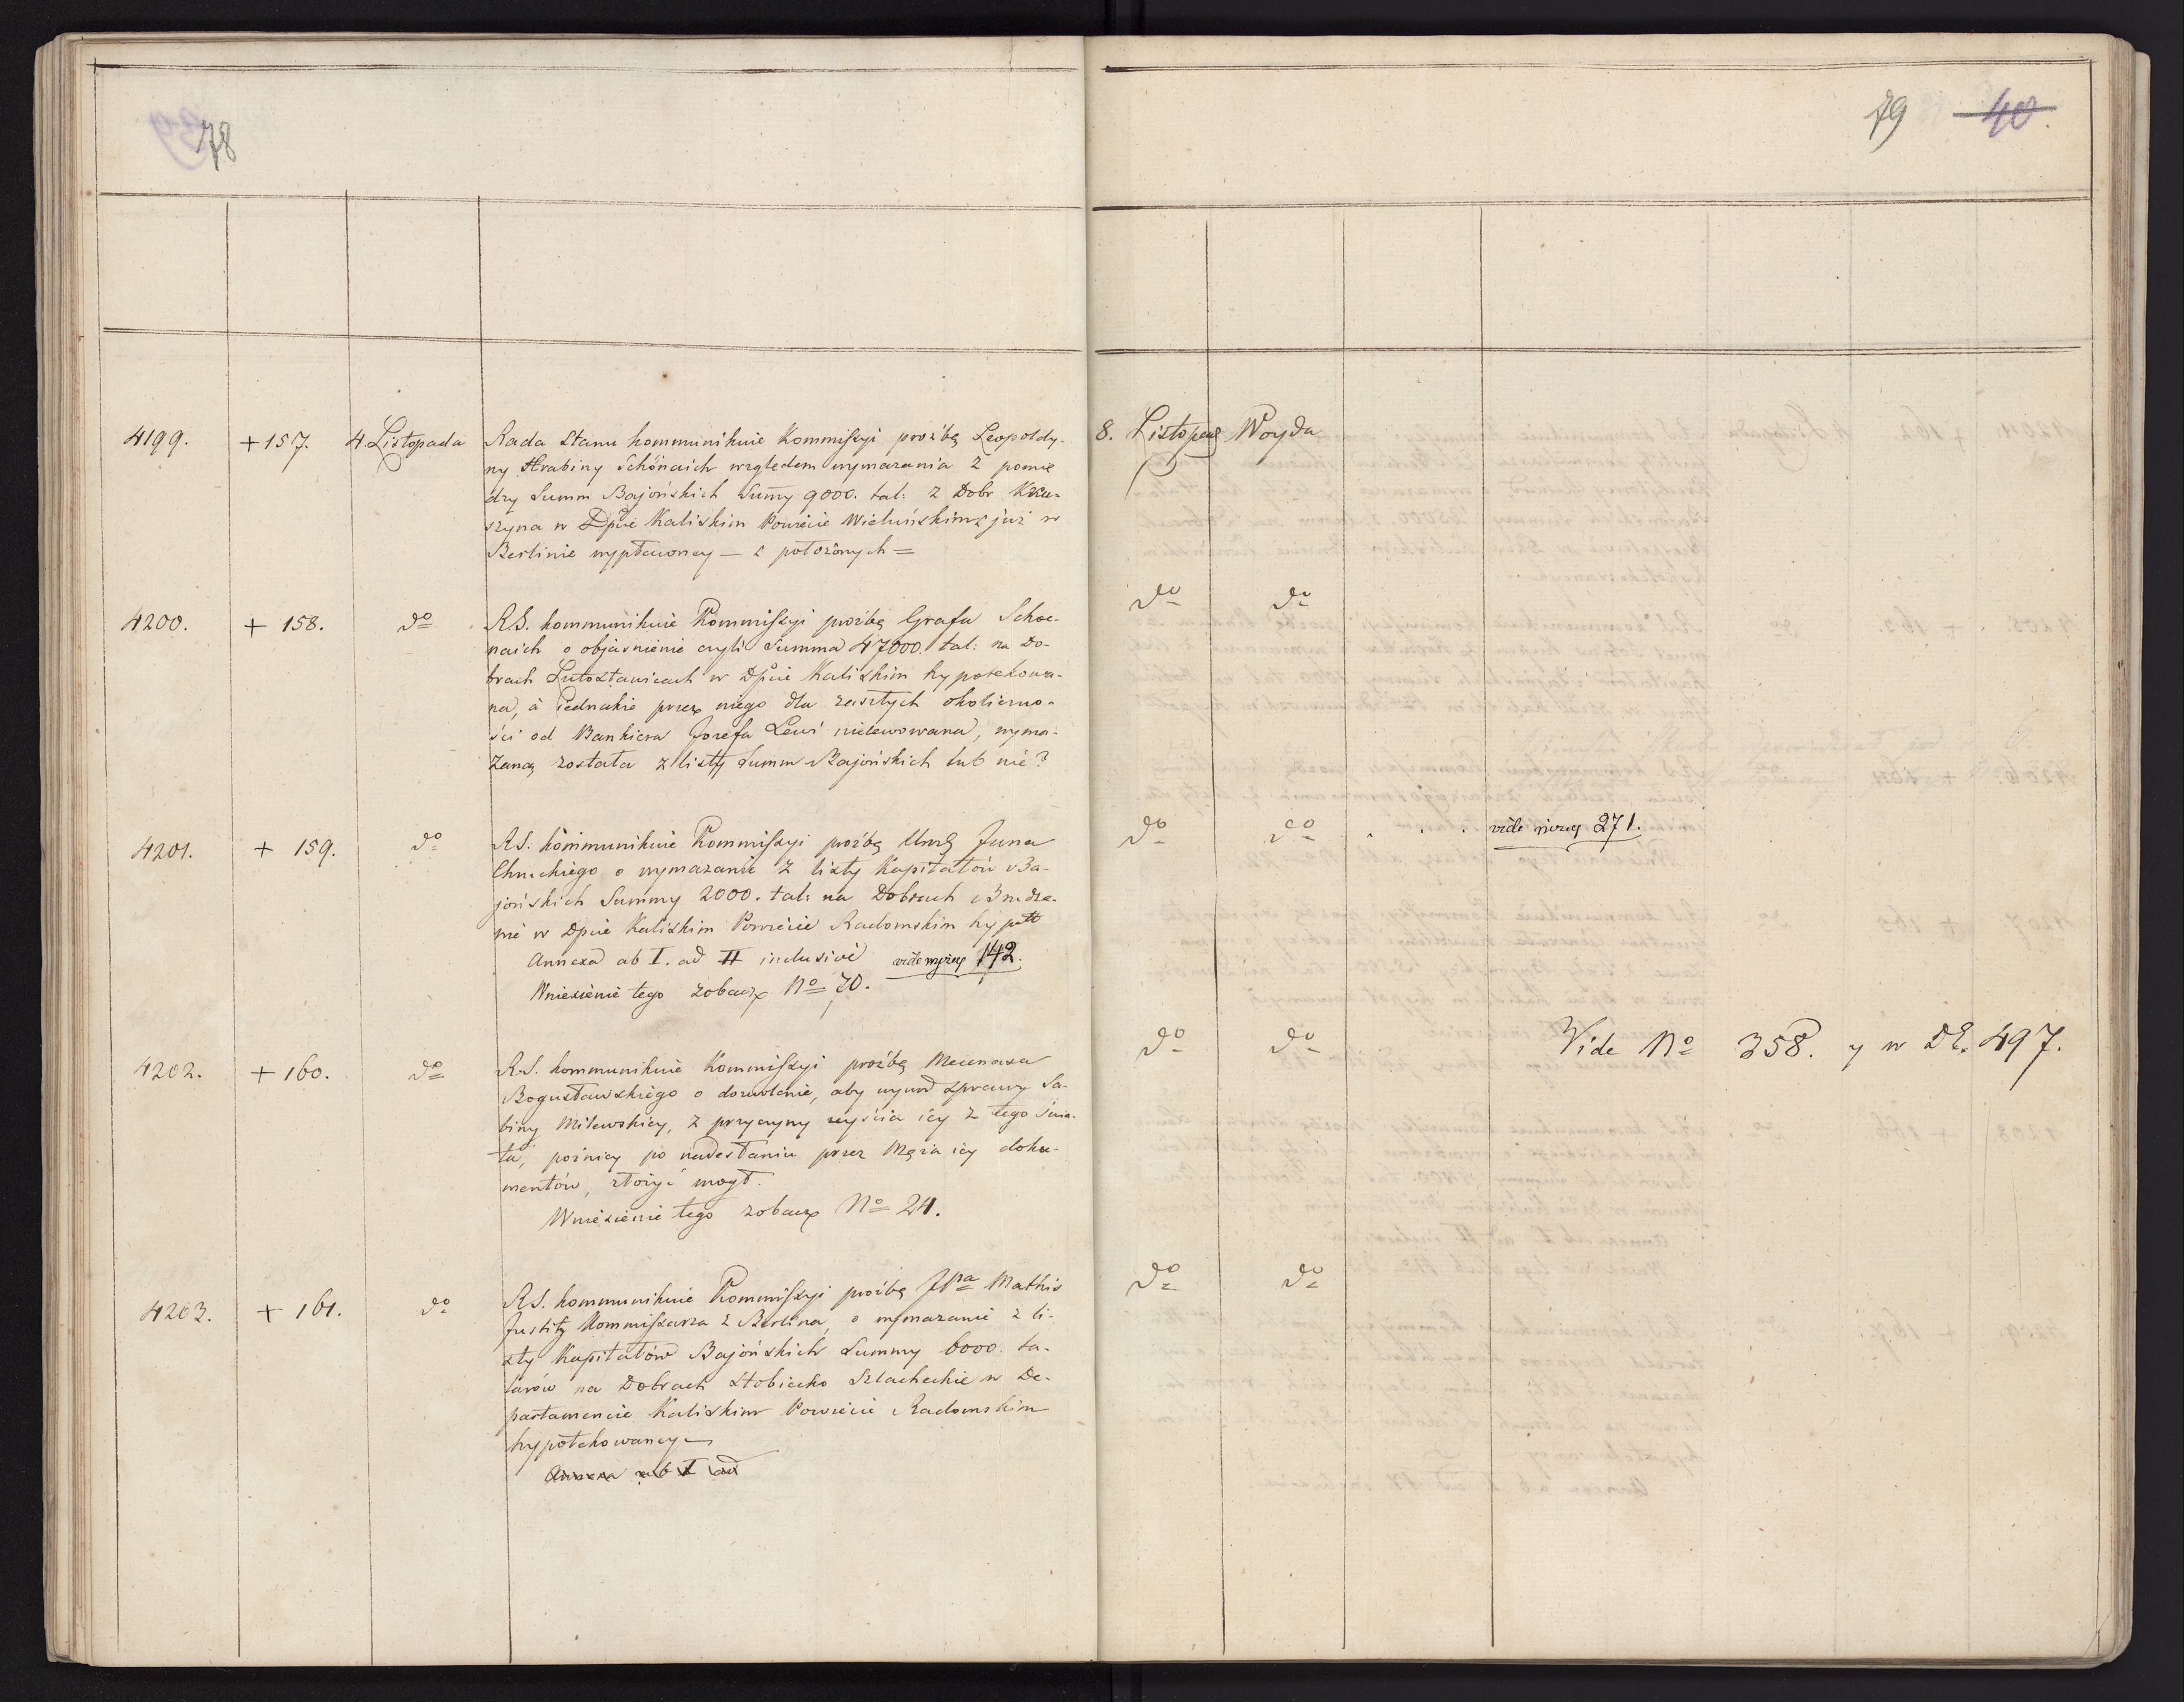 78
4199. + 157. 4. Listopada
Rada Stanu kommunikuie Kommissyi prożbę Leopoldy-
ny Hrabiny Schönaich względem wymazania z pomię
dzy Summ Bajońskich Summy 9000. tal: z Dobr
szyna w Dpcie Kaliskim Powiecie Wieluńskim już w
Berlinie wypłaconey — z położonych =
4200. + 158. do
RS. kommunikuie Kommissyi prożbę Grafa Schoe-
naich o objaśnienie czyli Summa 47000. tal: na Do-
brach Lutosławicach w Dpcie Kaliskim hypotekowa-
na, á iednakże przez niego dla zaszłych okoliczno-
ści od Bankiera Jozefa Lewi nielewowana, wyma-
zaną została z listy Summ Bajońskich lub nié?
4201. + 159. do
RS. kommunikuie Kommissyi prożbę Jana
o wymazanie z listy Kapitałów Ba-
jońskich Summy 2000. tal: na Dobrach
nie w Dpcie Kaliskim Powiecie Radomskim hypott
Annexa ab I. ad II inclusivé vide wyżey 142.
Wniesienie tego zobacz No 70.
4202. + 160. do
R.S. kommunikuie Kommissyi prożbę Mecenasa
Bogusławskiego o dozwolenie, aby wywod sprawy Sa-
biny Milewskiey, z przyczyny zeyścia iéy z tego świa-
ta, poźniey po nadesłaniu przez Męża iéy doku-
mentów, złożyć mogł.
Wniesienie tego zobacz No 24.
4203. + 161. do
RS. kommunikuie Kommissyi prożbę JPa Mathis
Justitz Kommissarza z Berlina, o wymazanie z li-
sty Kapitałów Bajońskich Summy 6000. ta-
larów na Dobrach Stobiecko Szlacheckie w De-
partamencie Kaliskim Powiecie Radomskim
hypotekowaney
Annexa ab I ad
79 40.
8. Listopad Woyda
do do
do do . . . vide niżey 271.
do do Vide No 358. y w DZ. 497.
do do